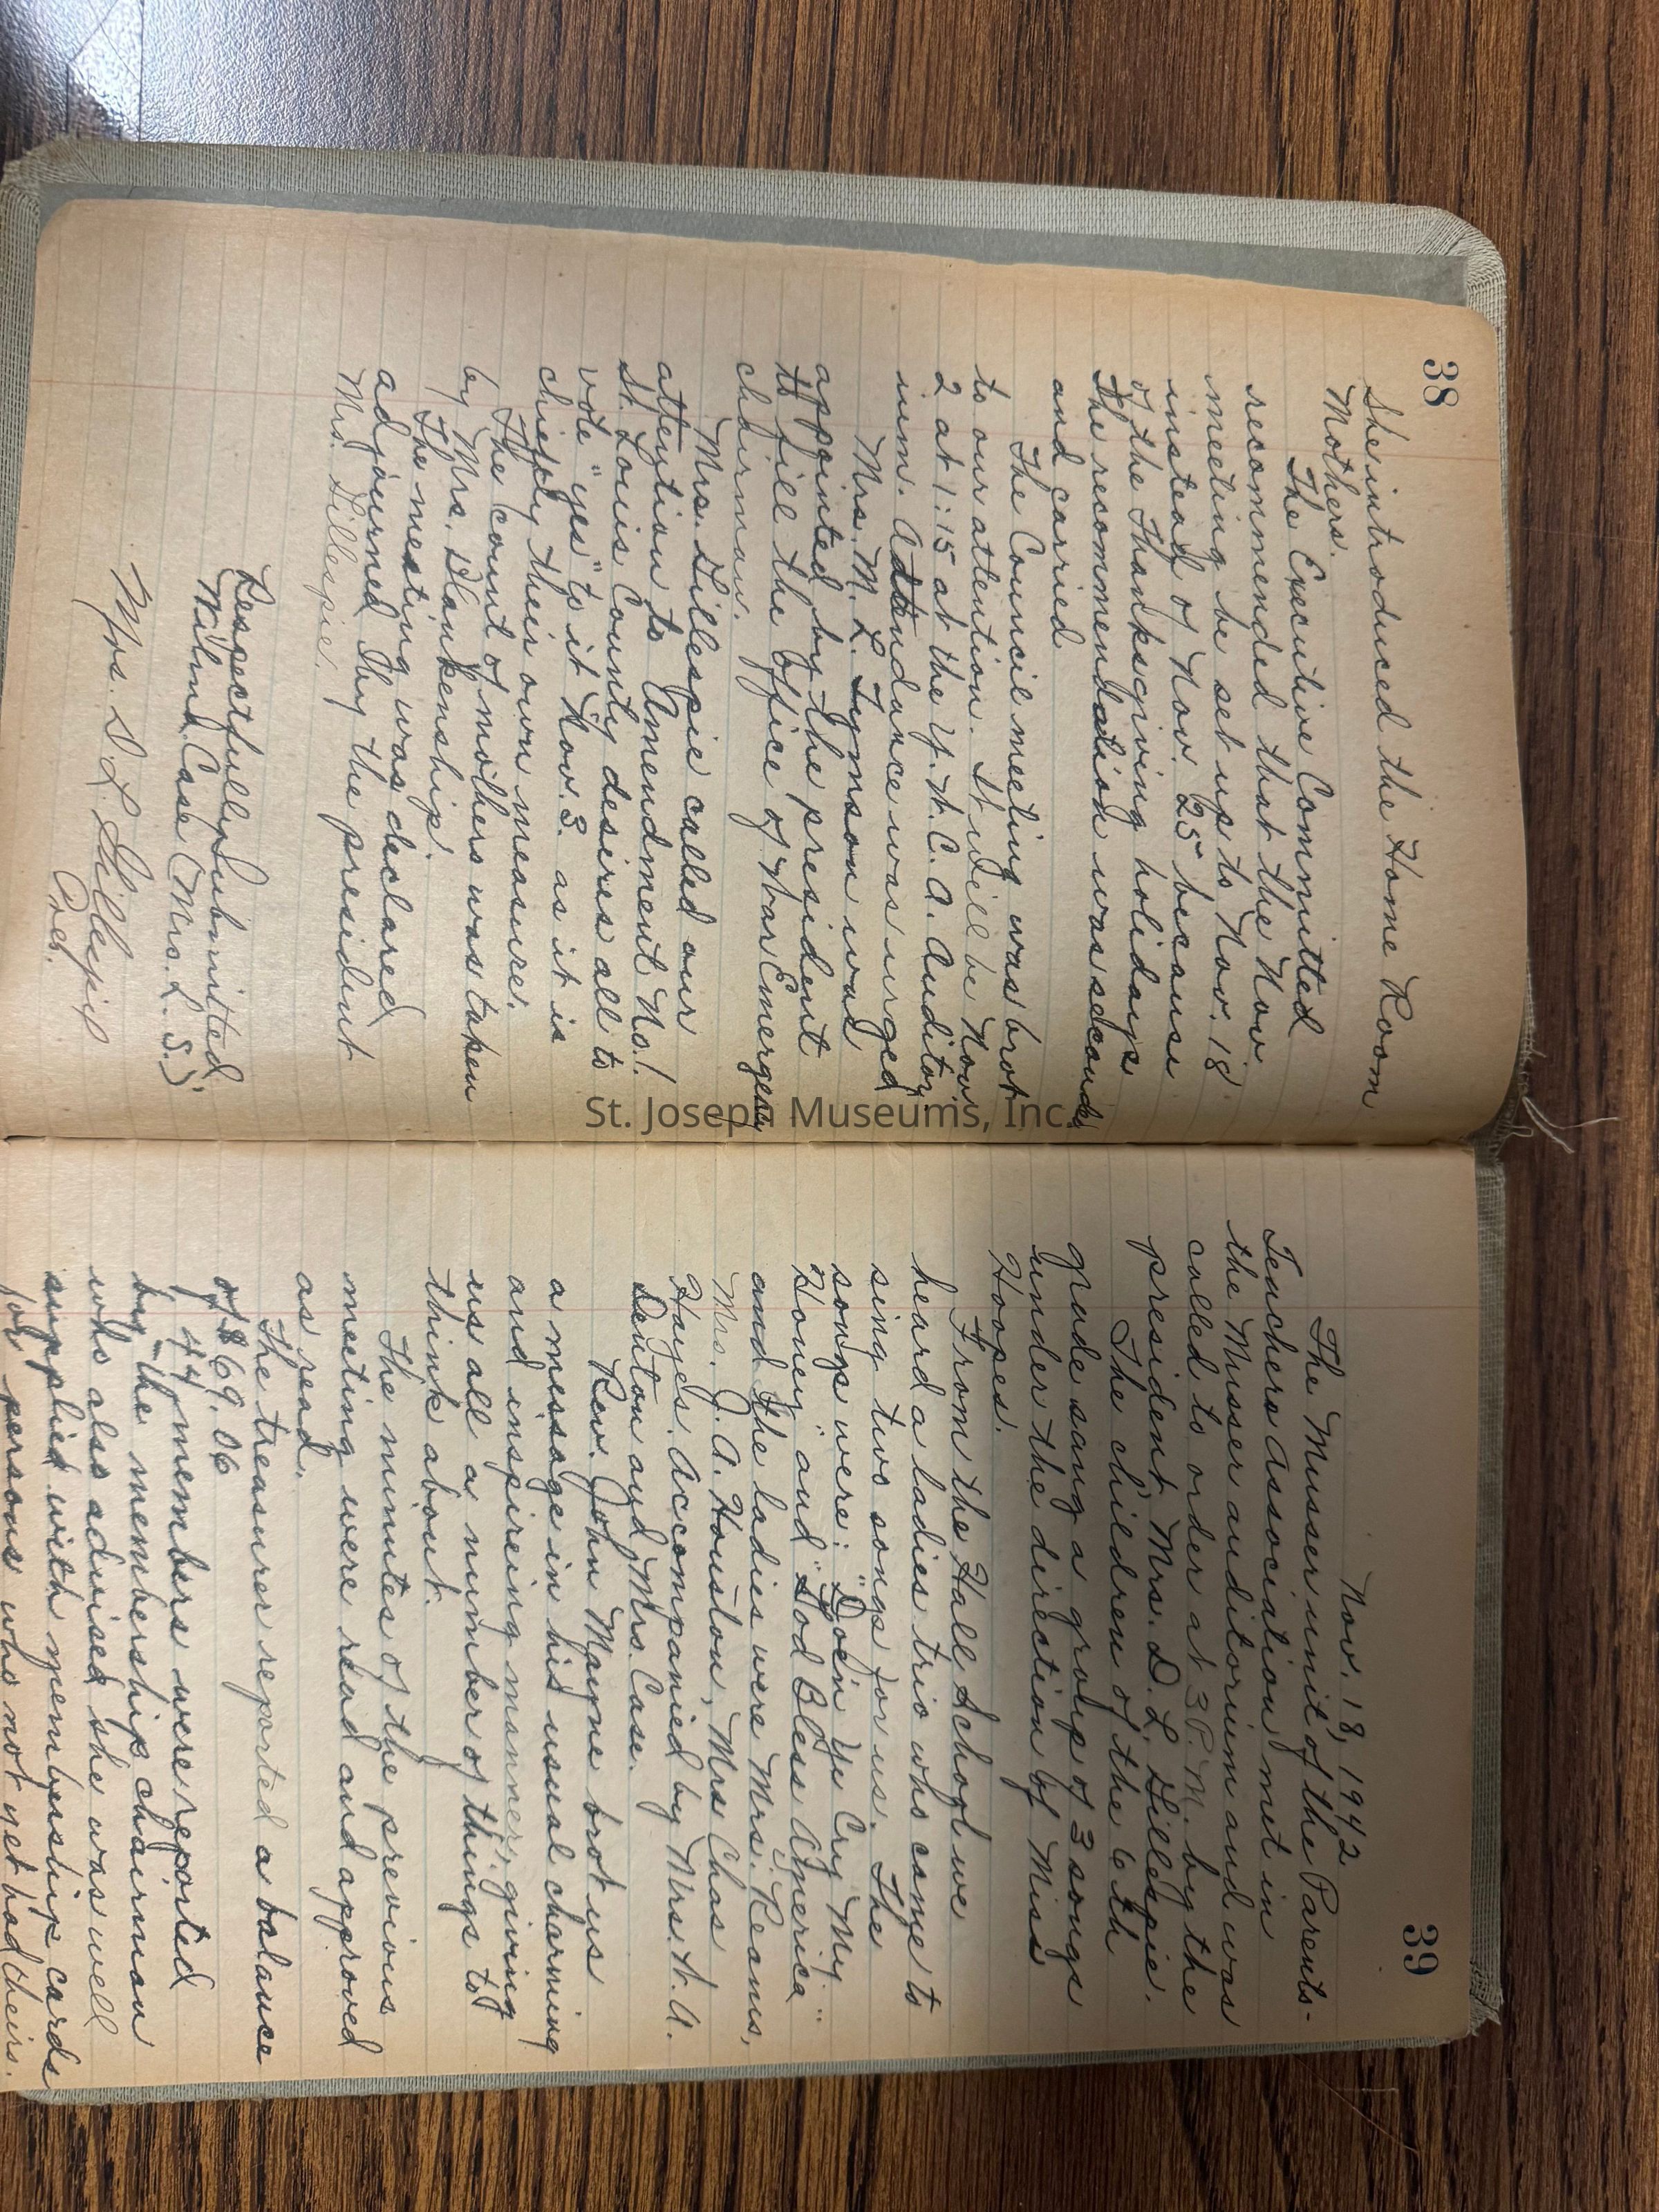 38
She introduced the Home Room
Mothers.
The Executive Committed
recommended that the Nov.
meeting be set up to Nov. 18
instead of Nov. 25 because
of the Thanksgiving holidays
The recommendation was seconded
and carried.
The Council meeting was brot
to our attention. It will be Nov.
2 at 1:15 at the Y.W.C.A. Auditor-
ium. Attendance was urged
Mrs. M. L. Tymson was
appointed by the president
to fill the office of War Emergency
chairman.
Mrs. Gillespie called our
attention to Amendment No. 1
St. Louis County desires all to
vote "yes" to it Nov. 3. as it is
chiefly their own measure.
The count of mothers was taken
by Mrs. Blankenship.
The meeting was declared
adjourned by the president
Mrs. Gillespie.
Respectfully Submitted
Milma Case (Mrs. L. S.)
Mrs. D. L. Gillespie
Pres.
39
Nov. 18, 1942
The Musser unit of the Parents-
Teachers Association met in
the Musser auditorium and was
called to order at 3 P.M. by the
president, Mrs. D. L. Gillespie.
The children of the 6th
grade sang a group of 3 songs
under the direction of Miss
Hoopes.
From the Hall School we
heard a ladies trio who came to
sing two songs for us. The
songs were: "Doen Ye Cry My
Honey" and "God Bless America"
and the ladies were Mrs. Reams,
Mrs. J. A. Houston, Mrs Chas
Hayes. Accompanied by Mrs. W. A.
Denton and Mrs. Case.
Rev. John Mayne brot us
a message in his usual charming
and inspireing manner, giving
us all a number of things to
think about.
The minutes of the previous
meeting were read and approved
as read.
The treasurer reported a balance
of $69.06
44 members were reported
by the membership chairman
who also advised she was well
supplied with membership cards
for persons who not yet had theirs.
St. Joseph Museums, Inc.